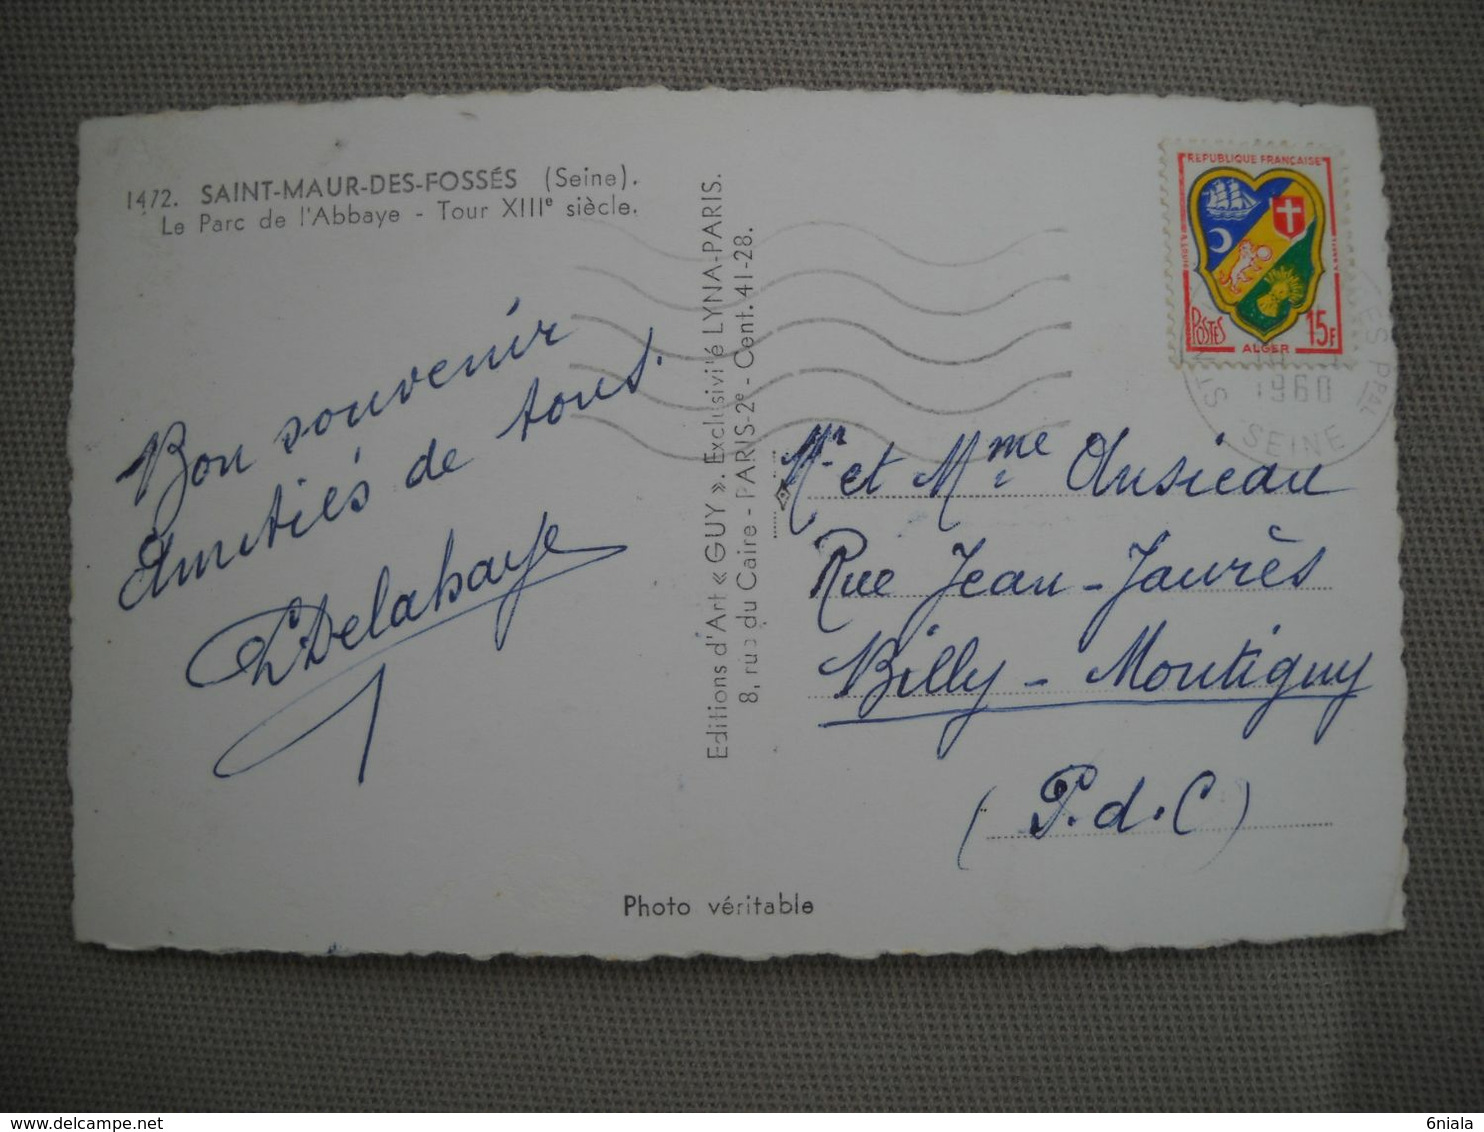 1472. SAINT-MAUR-DES-FOSSÉS (Seine).
Le Parc de l'Abbaye - Tour XIIIe siècle.
Bon souvenir
Amitiés de tous.
Delahaye
Editions d'Art « GUY ». Exclusivité LYNA-PARIS.
8, rue du Caire - PARIS-2e - Cent. 41-28.
REPUBLIQUE FRANÇAISE
POSTES
15F
ALGER
1960
SEINE
PPAL
Mr et Mme Ansieau
Rue Jean-Jaurès
Billy - Montigny
(P.d.C)
Photo véritable
6niala